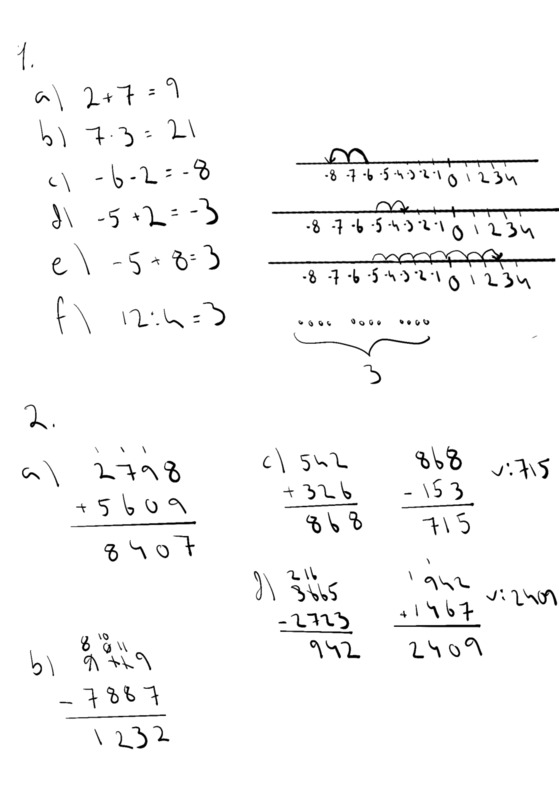 1.
a) 2+7=9
b) 7·3=21
c) -6-2=-8
-8 -7 -6 -5 -4 -3 -2 -1 0 1 2 3 4
d) -5+2=-3
-8 -7 -6 -5 -4 -3 -2 -1 0 1 2 3 4
e) -5+8=3
-8 -7 -6 -5 -4 -3 -2 -1 0 1 2 3 4
f) 12:4=3
3
2.
a)
1 1 1
2798
+5609
8407
c) 542
+326
868
868
-153
715
v:715
d)
2 16
3665
-2723
942
1 1
942
+1467
2409
v:2409
b)
8 10 11
-7887
1232